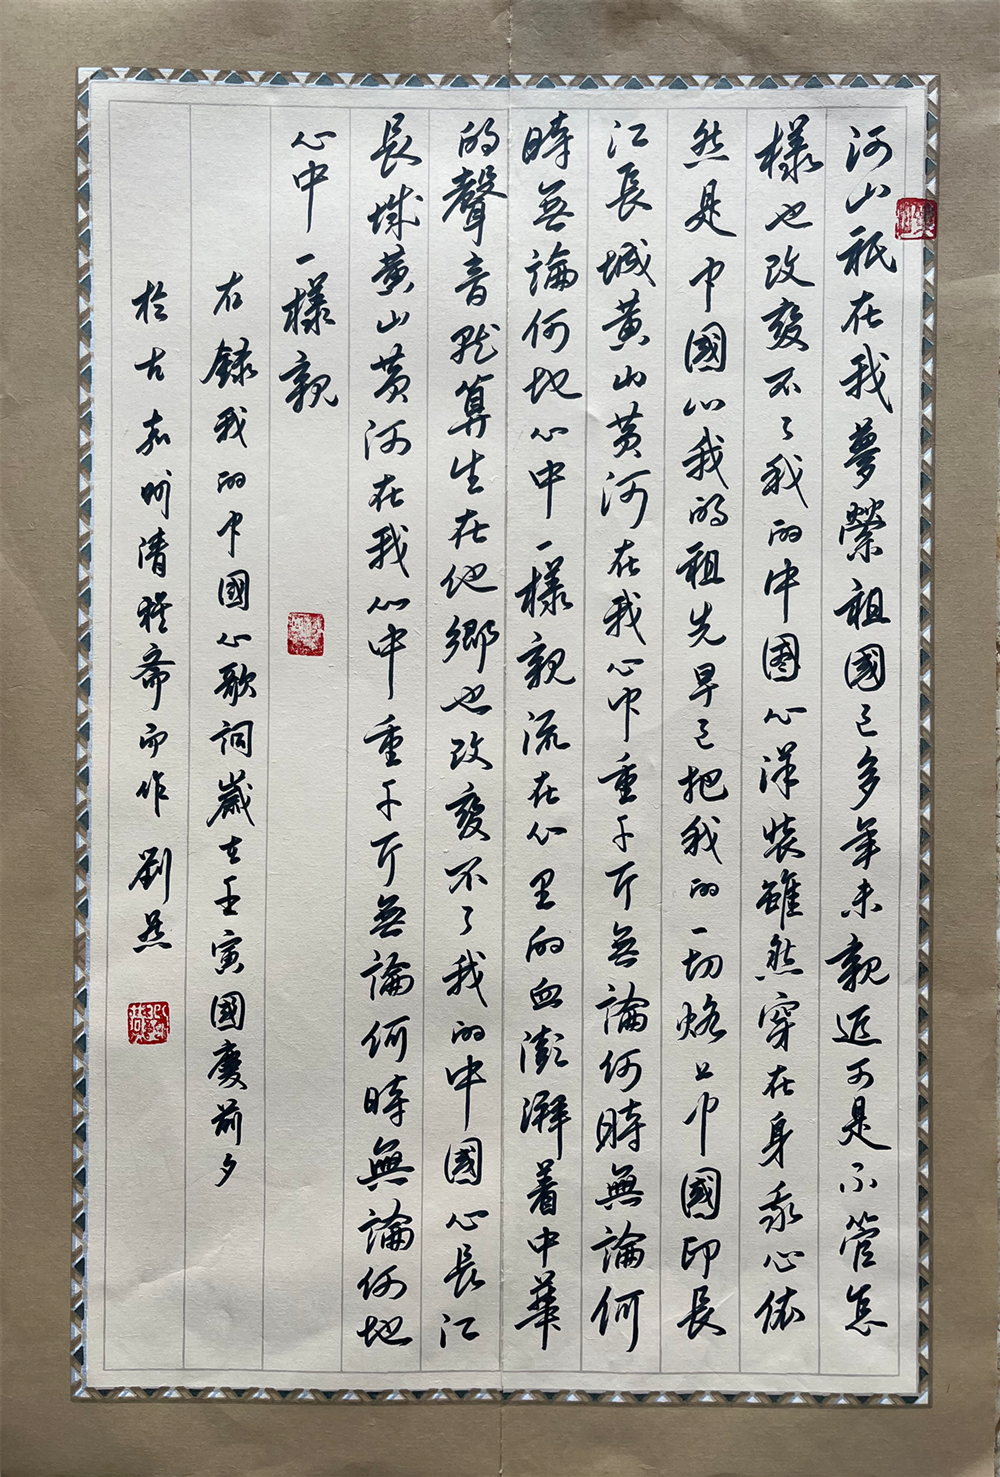 河山祇在我夢縈祖國已多年未親近可是不管怎
樣也改變不了我的中國心洋裝雖然穿在身我心依
然是中國心我的祖先早已把我的一切烙上中國印長
江長城黃山黃河在我心中重千斤無論何時無論何
時無論何地心中一樣親流在心里的血澎湃着中華
的聲音就算生在他鄉也改變不了我的中國心長江
長城黃山黃河在我心中重千斤無論何時無論何地
心中一樣親
右錄我的中國心歌詞歲在壬寅國慶前夕
於古嘉州清穆齋而作劉燕